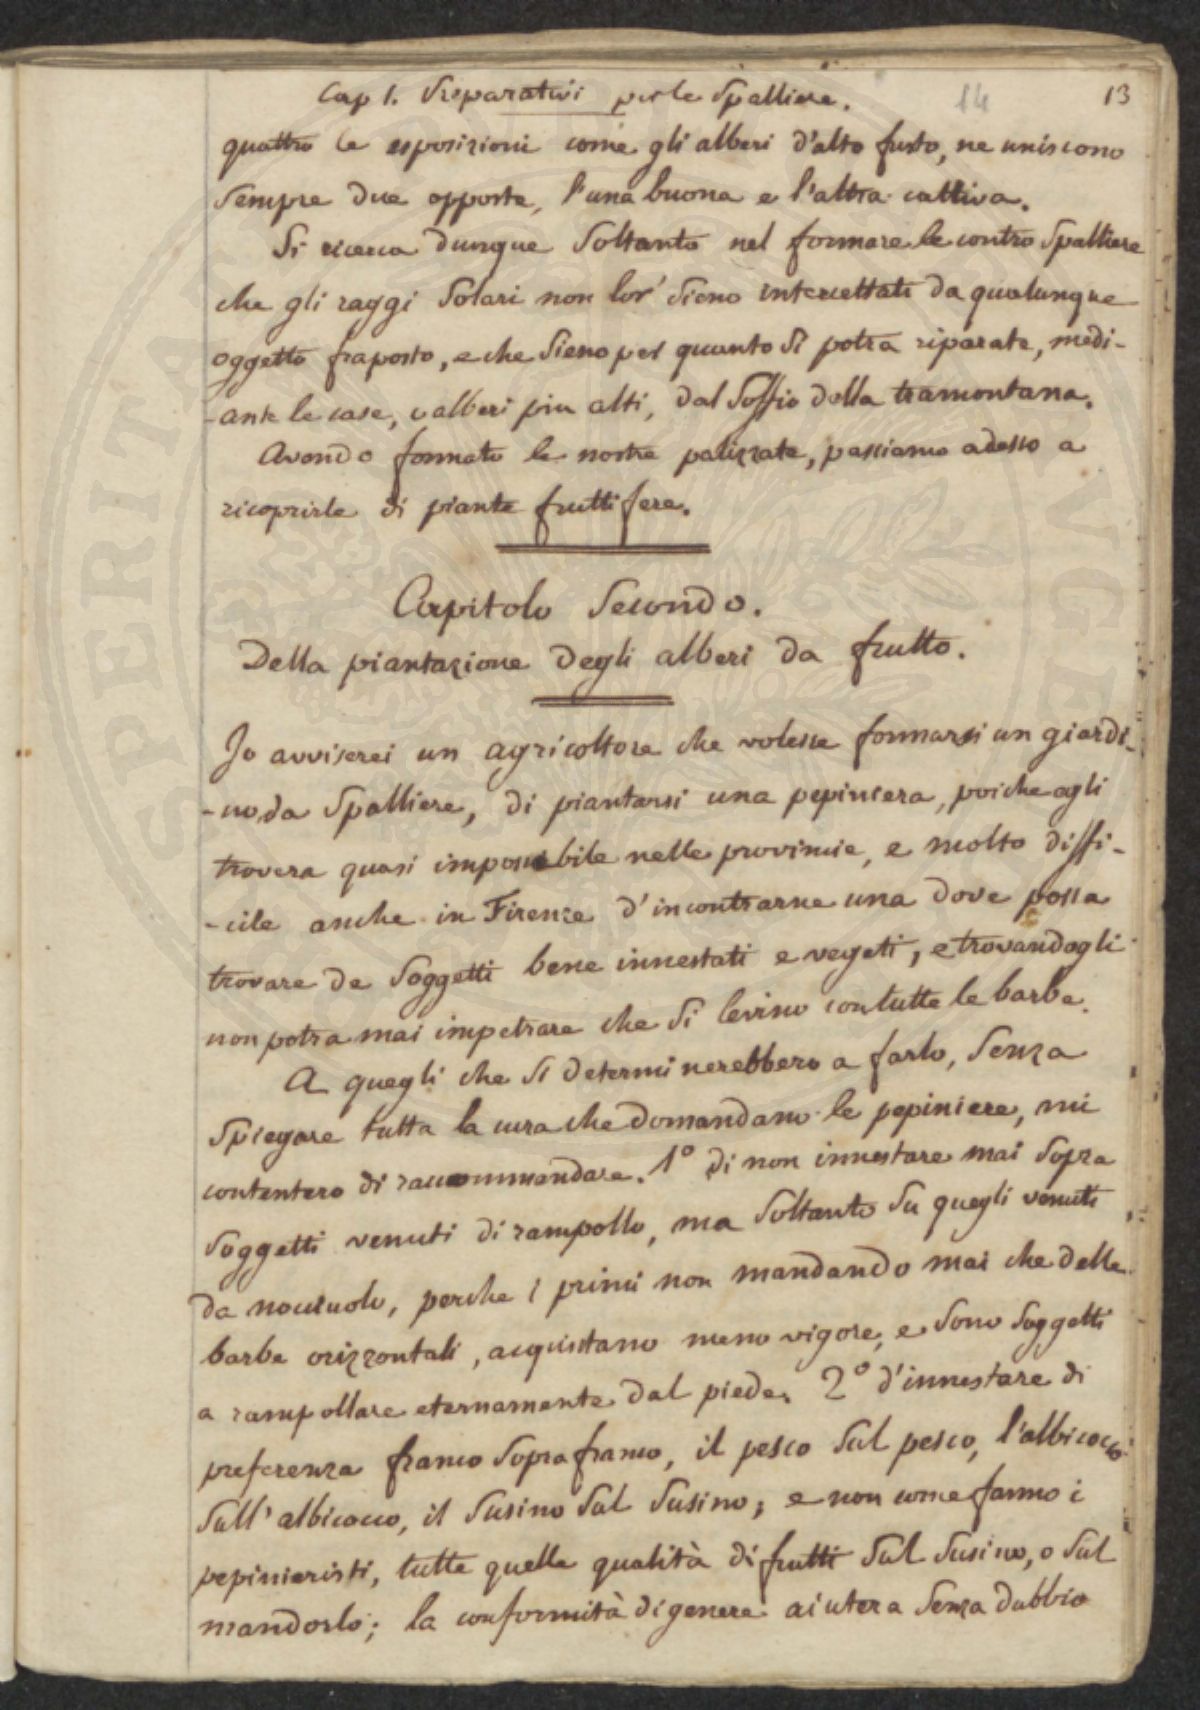 Cap 1. Preparativi per le Spalliere. 14 13
quattro le esposizioni come gli alberi d'alto fusto, ne uniscono
sempre due opposte, l'una buona e l'altra cattiva.
Si ricerca dunque soltanto nel formare le contro Spalliere
che gli raggi Solari non lor' sieno intercettati da qualunque
oggetto fraposto, e che sieno per quanto si potra riparate, medi-
-ante le case, o alberi piu alti, dal soffio della tramontana.
Avendo formato le nostre palizzate, passiamo adesso a
ricoprirle di piante fruttifere.
Capitolo Secondo.
Della piantazione degli alberi da frutto.
Io avviserei un agricoltore che volesse formarsi un giardi-
-no da Spalliere, di piantarsi una pepiniera, poiche egli
trovera quasi impossibile nelle provincie, e molto diffi-
-cile anche in Firenze d'incontrarne una dove possa
trovare de soggetti bene innestati e vegeti, e trovandogli
non potra mai impetrare che si levino con tutte le barbe.
A quegli che si determinerebbero a farlo, senza
spiegare tutta la cura che domandano le pepiniere, mi
contentero di raccommandare. 1° di non innestare mai sopra
soggetti venuti di rampollo, ma soltanto su quegli venuti
da nocciuolo, perche i primi non mandando mai che delle
barbe orizzontali, acquistano meno vigore, e sono soggetti
a rampollare eternamente dal piede. 2° d'innestare di
preferenza franco sopra franco, il pesco sul pesco, l'albicocco
sull'albicocco, il susino sul susino; e non come fanno i
pepinieristi, tutte quelle qualità di frutti sul susino, o sul
mandorlo; la conformità di genere aiutera senza dubbio
SPERITAT